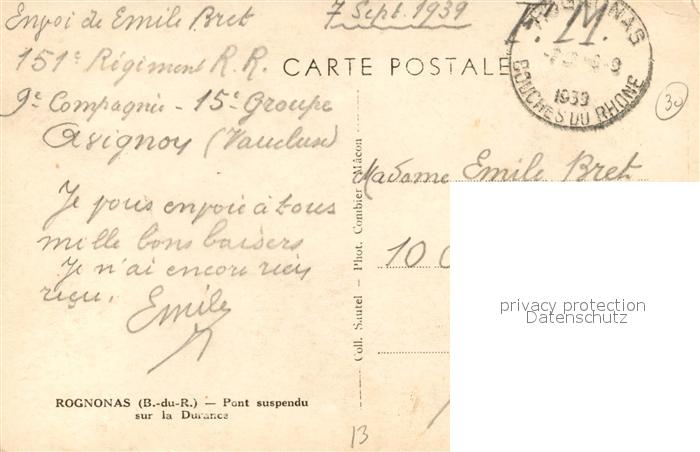 Envoi de Emile Bret
7 Sept. 1939
151e Régiment R.R.
9e Compagnie - 15e Groupe
Avignon (Vaucluse)
Je vous envoie à tous
mille bons baisers
Je n'ai encore rien
reçu.
Emile
ROGNONAS (B.-du-R.) — Pont suspendu
sur la Durance
13
Coll. Sautel — Phot. Combier Mâcon
CARTE POSTALE
F.M.
ROGNONAS
1939
BOUCHES DU RHONE
30
Madame Emile Bret
10
privacy protection
Datenschutz